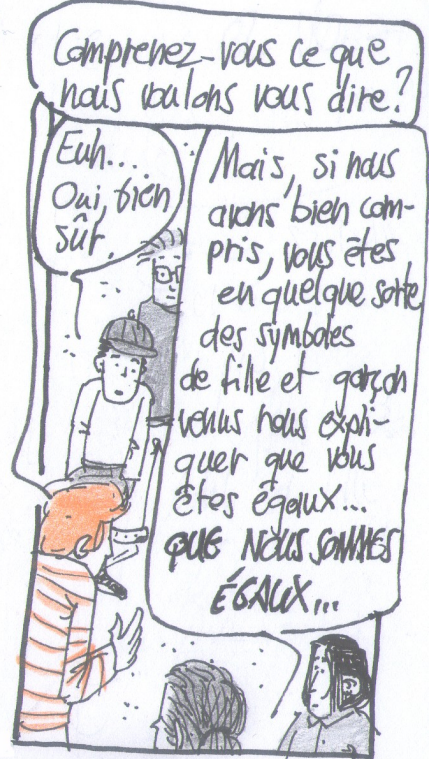 Comprenez-vous ce que
nous voulons vous dire?
Euh...
Oui, bien
sûr.
Mais, si nous
avons bien com-
pris, vous êtes,
en quelque sorte
des symboles
de fille et garçon
venus nous expli-
quer que vous
êtes égaux...
QUE NOUS SOMMES
ÉGAUX...